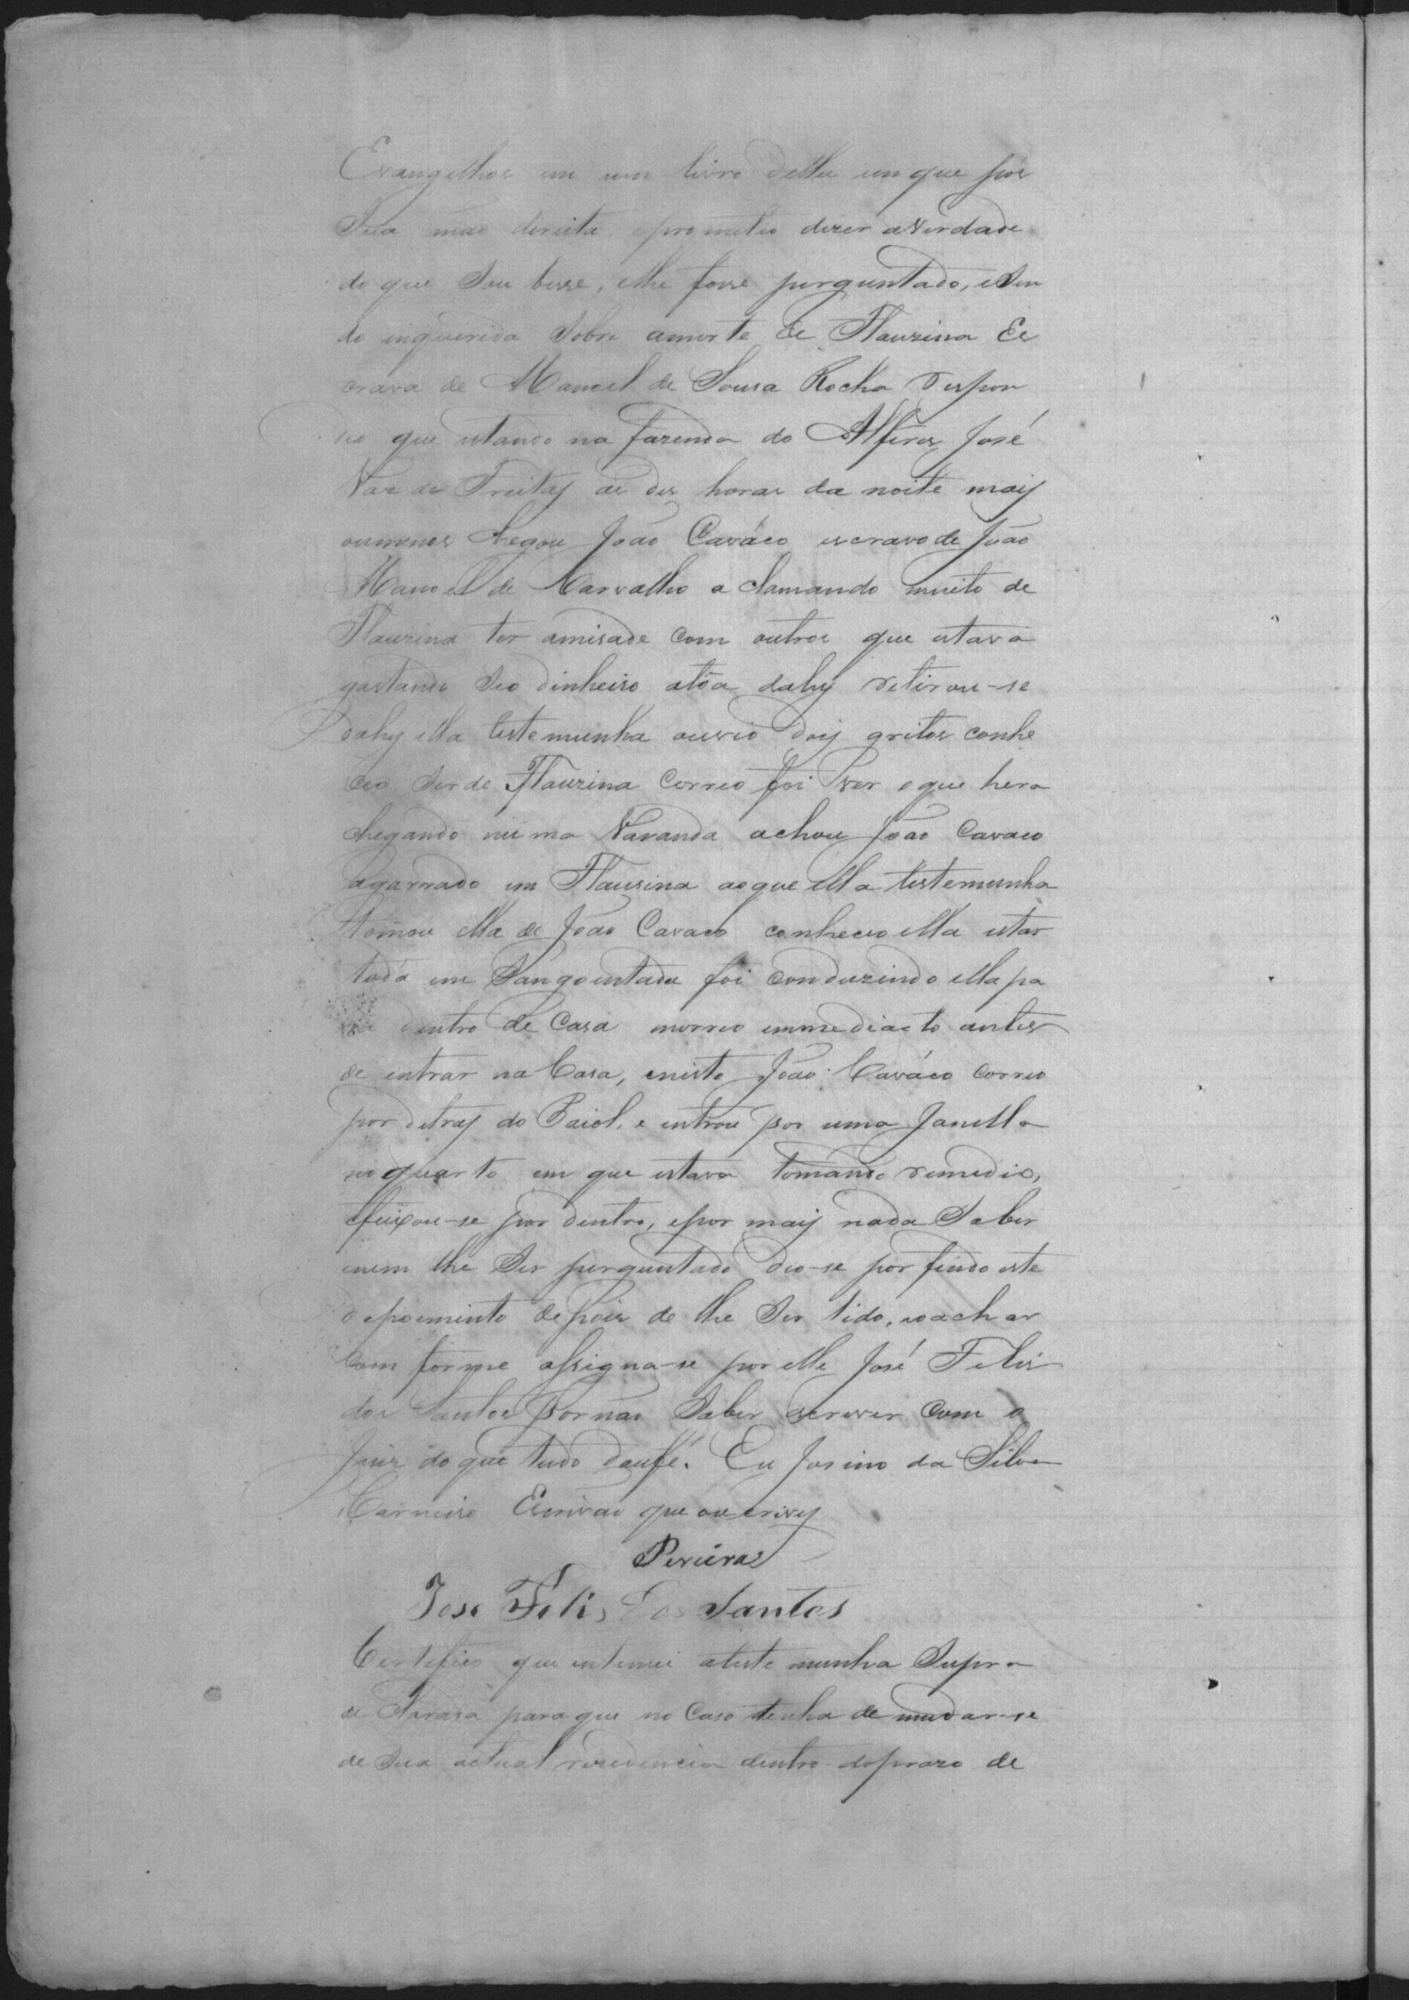 Evangelhos em um livro delles em que pôs
Sua mão direita, eprometeo dizer averdade
do que Sou besse, elhe fosse perguntado, eSen
do inquerida Sobre amorte de Flauzina Es
crava de Manoel de Sousa Rocha respon
deo que estando na fazenda do Alferes José
Vaz de Freitas as des horas da noite mais
oumenos chegou João Caváco escravo de João
Manoel de Carvalho a clamando muito de
Flauzina ter amisade com outros que estava
gastando Seo dinheiro atôa dahy retirou-se
dahy ella testemunha ouvio dois gritos conhe
ceo Ser de Flauzina correo foi ver oque hera
chegando nuima Varanda achou João Cavaco
agarrado em Flausina aoque ella testemunha
tomou ella de João Cavaco conheceo ella estar
toda em Sangoentada foi conduzindo ella pa
ra dentro de Casa morreo immediacto antes
de entrar na Casa, enisto João Caváco correo
por detras do Paiol, e entrou por uma Janella
no quarto em que estava tomando remedio,
efeixou-se por dentro, epor mais nada Saber
enem lhe Ser perguntado deo-se por findo este
depoemento depois de lhe Ser lido, eoachar
Com forme assigna-se por elle José Felis
dos Santos por não Saber escrever com o
Juiz do que tudo doufé. Eu Josino da Silva
Carneiro Escrivão que oescrevy
Pereira
Jose Felis dos Santos
Certefico que entemei ateste munha Supra
de Farada para que no Caso tenha de mudar-se
de Sua actual residencia dentro doprazo de